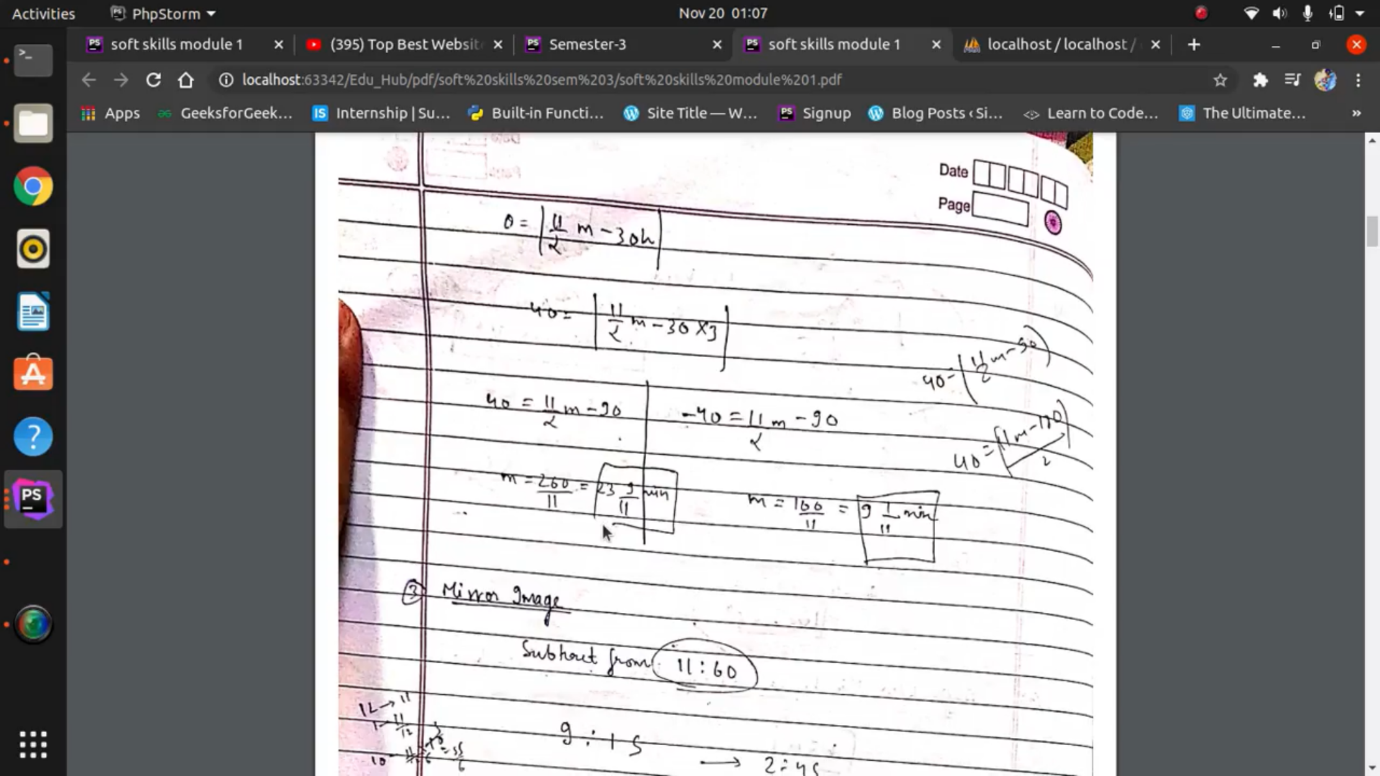 Activities PhpStorm Nov 20 01:07
soft skills module 1 (395) Top Best Website Semester-3 soft skills module 1 localhost / localhost /
localhost:63342/Edu_Hub/pdf/soft%20skills%20sem%203/soft%20skills%20module%201.pdf
Apps GeeksforGeek... Internship | Su... Built-in Functi... Site Title — W... Signup Blog Posts ‹ Si... Learn to Code... The Ultimate... »
Date
Page
θ = |11/2 m - 30h|
40 = |11/2 m - 30 x 3|
40 = (11/2 m - 90)
40 = 11/2 m - 90
-40 = 11/2 m - 90
40 = (11m - 180)/2
m = 260/11 = 23 9/11 min
m = 100/11 = 9 1/11 min
③ Mirror Image
Subtract from 11:60
12 → 11
9 : 15
→ 2:45